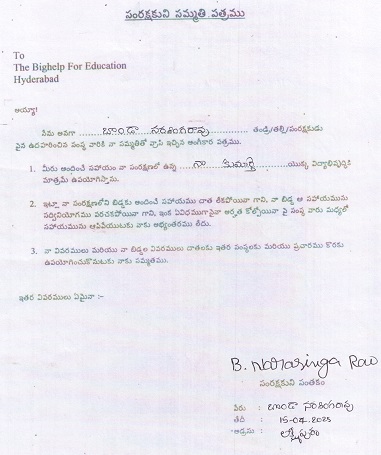 సంరక్షకుని సమ్మతి పత్రము
To
The Bighelp For Education
Hyderabad
అయ్యా!
నేను అనగా బొండా నరసింగరావు తండ్రి/తల్లి/సంరక్షకుడు
పైన ఉదహరించిన సంస్థ వారికి నా సమ్మతితో వ్రాసి ఇచ్చిన అంగీకార పత్రము.
1. మీరు అందించే సహాయం నా సంరక్షణలో ఉన్న నా కుమార్తె యొక్క విద్యాభివృద్ధికి
మాత్రమే ఉపయోగిస్తాను.
2. ఇట్లా నా సంరక్షణలోని బిడ్డకు అందించే సహాయము దాత లేకపోయినా గాని, నా బిడ్డ ఆ సహాయమును
సద్వినియోగము పరచకపోయినా గాని, ఇంక ఏవిధముగానైనా అర్హత కోల్పోయినా పై సంస్థ వారు మధ్యలో
సహాయమును ఆపివేయుటకు నాకు అభ్యంతరము లేదు.
3. నా వివరములు మరియు నా బిడ్డల వివరములు దాతలకు ఇతర సంస్థలకు మరియు ప్రచారము కొరకు
ఉపయోగించుకొనుటకు నాకు సమ్మతము.
ఇతర వివరములు ఏమైనా :-
B. Narasinga Rao
సంరక్షకుని సంతకం
పేరు : బొండా నరసింగరావు
తేదీ : 15-04-2025
అడ్రసు : లక్ష్మీపురం